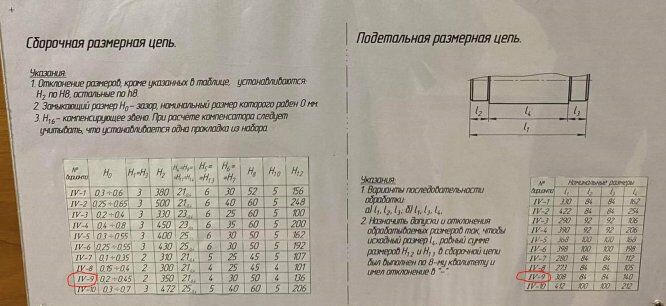 Сборочная размерная цепь.
Указания:
1. Отклонение размеров, кроме указанных в таблице, устанавливаются:
H₂ по H8, остальные по h8.
2. Замыкающий размер H₀ – зазор, номинальный размер которого равен 0 мм.
3. H₁₆ – компенсирующее звено. При расчёте компенсатора следует
учитывать, что устанавливается одна прокладка из набора.
№ варианта H₀ H₁=H₃ H₂ H₈ H₁₀ H₁₂
IV-1 0.3÷0.6 3 380 21 6 30 52 5 156
IV-2 0.25÷0.65 3 500 21 6 40 60 5 248
IV-3 0.2÷0.4 3 330 23 6 25 60 5 100
IV-4 0.4÷0.8 3 450 23 6 35 60 5 200
IV-5 0.3÷0.55 3 400 25 6 30 50 5 162
IV-6 0.25÷0.55 3 430 25 6 30 50 5 192
IV-7 0.1÷0.35 2 310 21 5 25 45 5 107
IV-8 0.15÷0.4 2 300 21 4 25 45 4 101
IV-9 0.2÷0.45 2 350 21 4 30 50 4 136
IV-10 0.3÷0.7 3 472 25 5 40 60 5 206
Подетальная размерная цепь.
l₂ l₄ l₃
l₁
Указания:
1. Варианты последовательности
обработки:
а) l₁, l₂, l₃, б) l₁, l₃, l₄,
2. Назначить допуски и отклонения
обрабатываемых размеров так, чтобы
исходный размер l₄, равный сумме
размеров H₁₂ и H₁₃, в сборочной цепи
был выполнен по 8-му квалитету и
имел отклонение в "-".
№ варианта Номинальные размеры
l₁ l₂ l₃ l₄
IV-1 330 84 84 162
IV-2 422 84 84 254
IV-3 290 92 92 106
IV-4 390 92 92 206
IV-5 368 100 100 168
IV-6 398 100 100 198
IV-7 280 84 84 112
IV-8 273 84 84 105
IV-9 308 84 84 140
IV-10 412 100 100 212